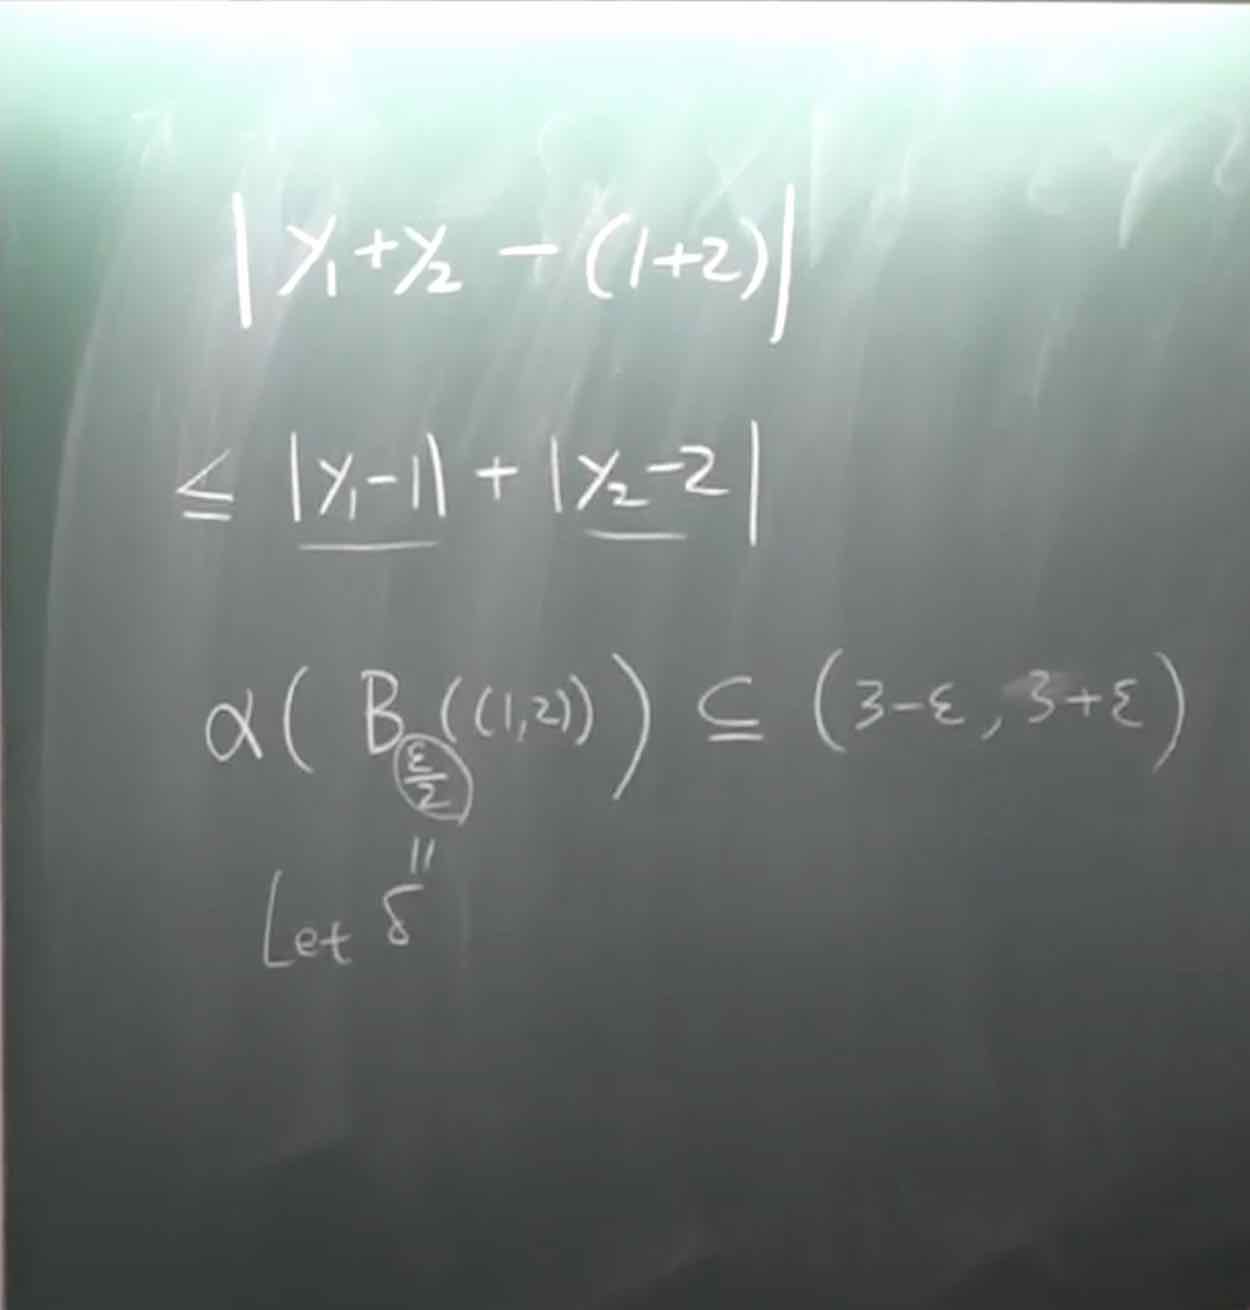 |y₁+y₂ - (1+2)|
≦ |y₁-1| + |y₂-2|
α( B_{ε/2}((1,2)) ) ⊆ (3-ε, 3+ε)
||
Let δ